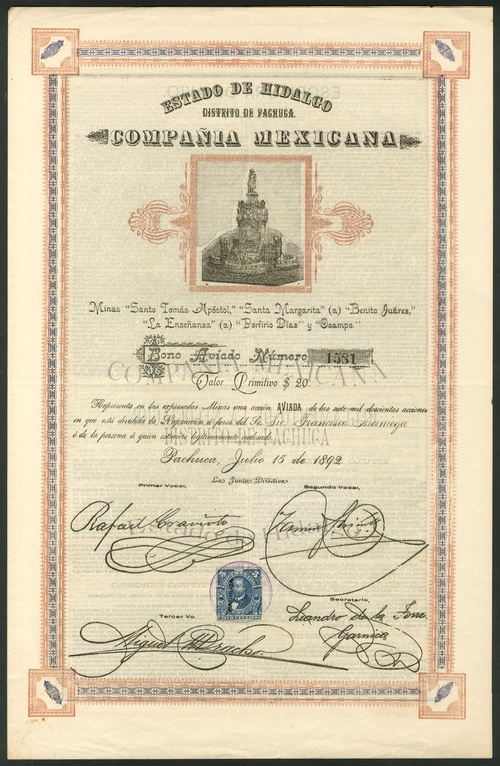 ESTADO DE HIDALGO
DISTRITO DE PACHUCA.
COMPAÑIA MEXICANA
Minas "Santo Tomás Apóstol," "Santa Margarita" (a) "Benito Juárez,"
"La Enseñanza" (a) "Porfirio Días" y "Ocampo."
Bono Aviado Número 1581
Valor Primitivo $ 20.
COMPAÑIA MEXICANA
Representa en las expresadas Minas una acción AVIADA de las siete mil doscientas acciones
en que está dividida la Negociación á favor del Sr. Francisco
ó de la persona á quien estuviere legítimamente endosado.
DISTRITO DE PACHUCA
Pachuca, Julio 15 de 1892
La Junta Directiva
Primer Vocal,
Segundo Vocal,
Rafael
Secretario,
Tercer Vo.
Leandro de la Torre
Garnica
Miguel